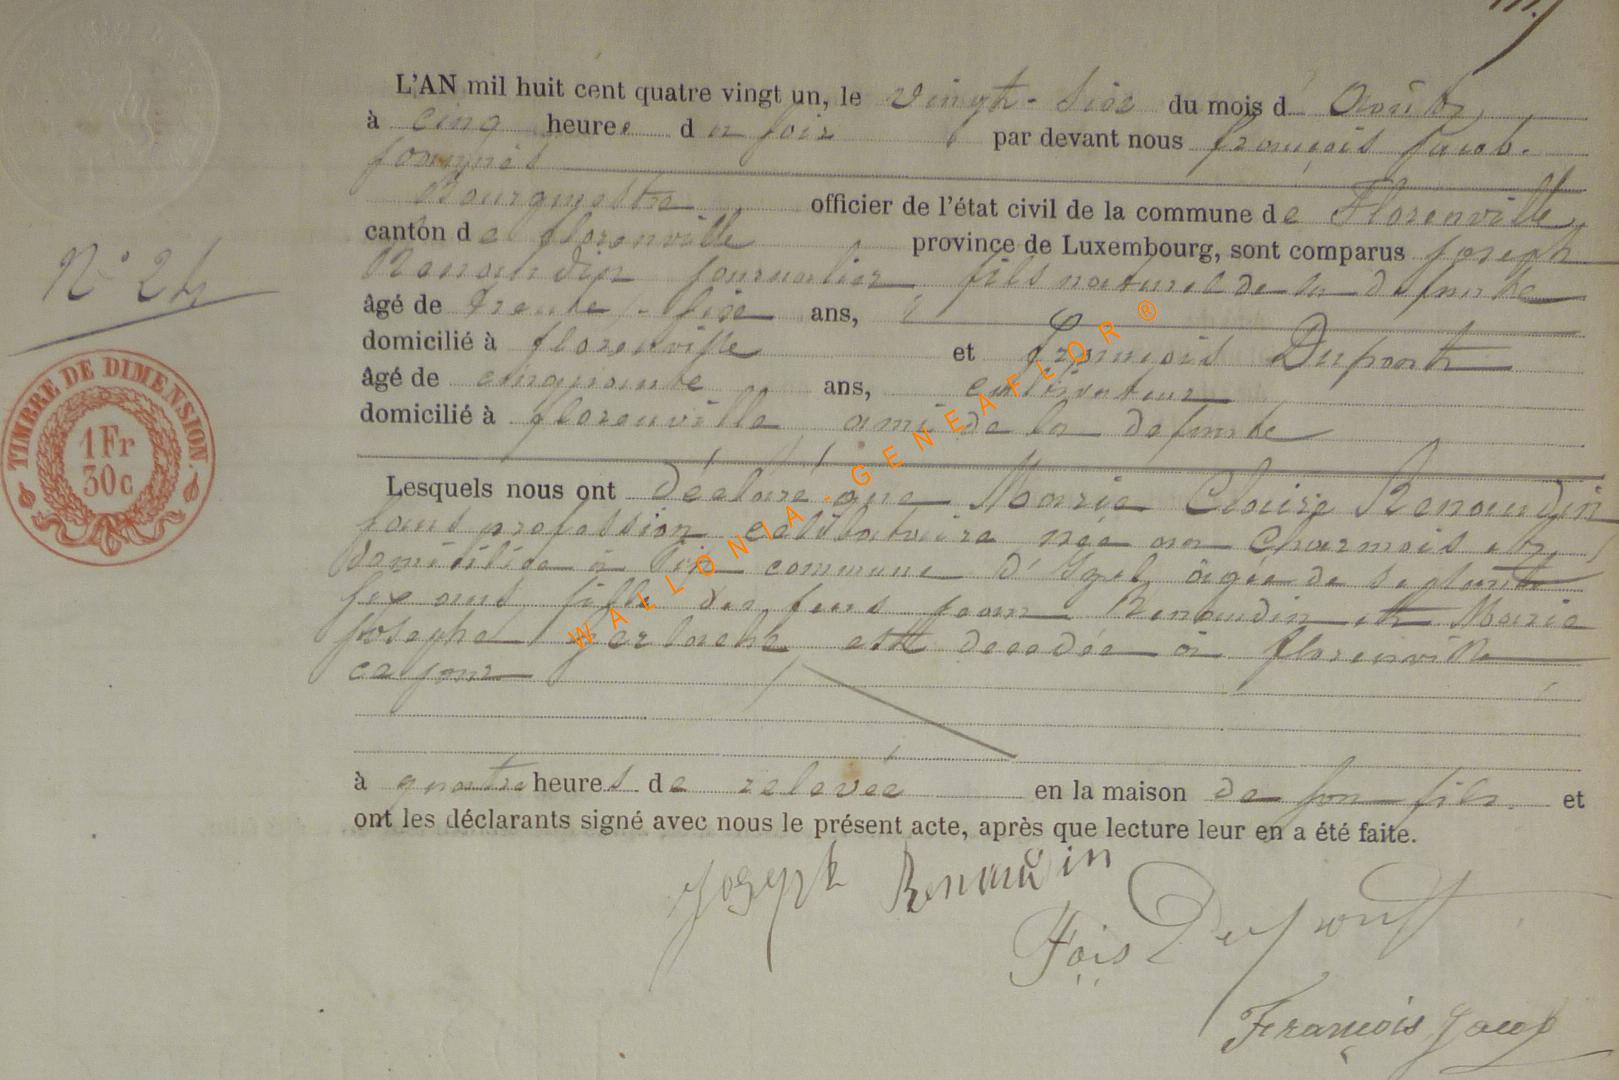 L'AN mil huit cent quatre vingt un, le vingt-six du mois d' Août,
à cinq heures du soir par devant nous François Jacob.
Bourgmestre officier de l'état civil de la commune de Florenville,
canton de florenville province de Luxembourg, sont comparus Joseph
Renaudin journalier fils naturel de la defunte
âgé de trente-six ans,
domicilié à florenville et François Dupont
âgé de cinquante ans, cultivateur
domicilié à florenville, ami de la defunte
Lesquels nous ont déclaré que Marie Claire Renaudin
sans profession celibataire née au Charmois et
domiciliée à Pin commune d'Izel, âgée de septante
six ans, fille des feus jean Renaudin et Marie
josephe gerlache est decedée à florenville
ce jour
à quatre heures de relevée en la maison de son fils. et
ont les déclarants signé avec nous le présent acte, après que lecture leur en a été faite.
Joseph Renaudin
Fois Dupont
François Jacob
N° 24
TIMBRE DE DIMENSION.
1 Fr
30c
WALLONIA-GENEAFLOR®